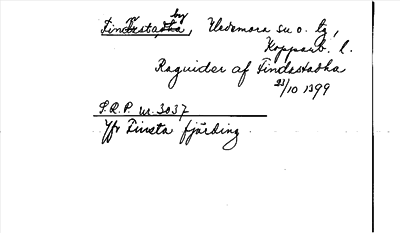 Findastadha, by, Hedemora su o. tg,
Kopparb. l.
Raguider af Findastadha
23/10 1399
S.R.P. nr. 3037
Jfr Finsta fjärding